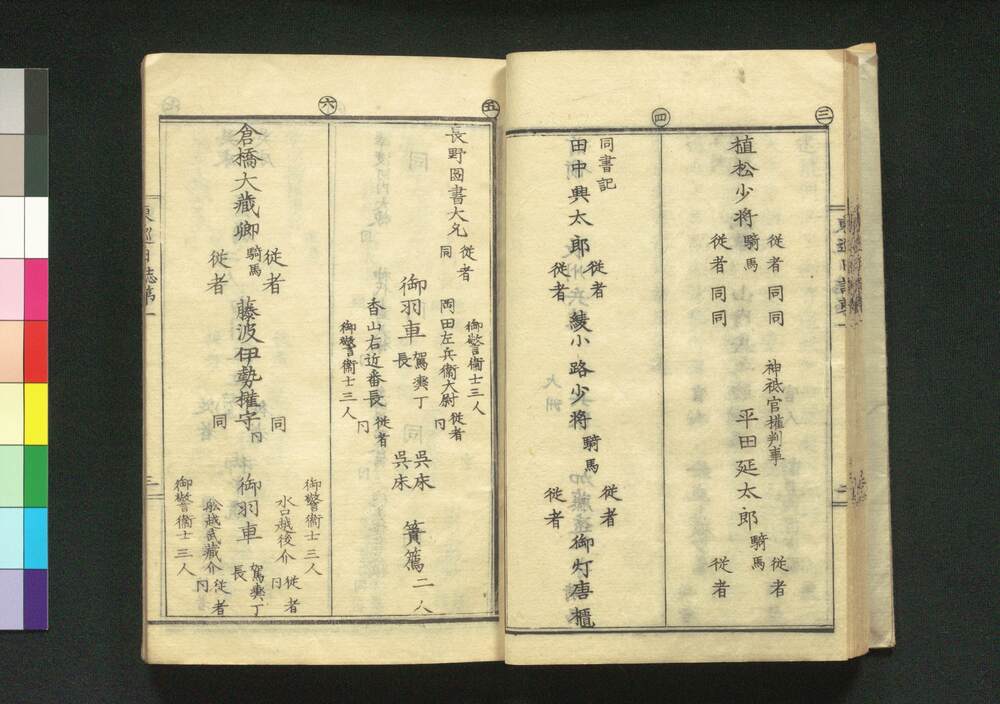 三
植松少将
騎馬
従者
従者
同同
同同
神祇官権判事
平田延太郎
騎馬
従者
従者
四
同書記
田中興太郎
従者
従者
綾小路少将
騎馬
従者
従者
御灯唐櫃
五
長野図書大允
従者
同
岡田左兵衛大尉
従者
同
御警衛士三人
御羽車
駕輿丁
長
香山右近番長
従者
同
御警衛士三人
呉床
呉床
簀薦二人
六
倉橋大蔵卿
騎馬
従者
従者
藤波伊勢権守
同
同
御羽車
駕輿丁
長
御警衛士三人
水口越後介
従者
同
舩越武蔵介
従者
同
御警衛士三人